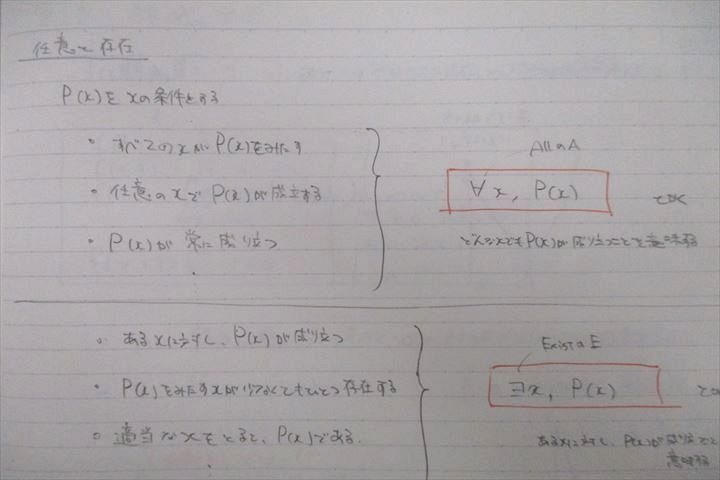 任意と存在
P(x)をxの条件とする
・すべてのxがP(x)をみたす
・任意のxでP(x)が成立する
・P(x)が常に成り立つ
AllのA
∀x, P(x)
とかく
どんなxでもP(x)が成り立つことを意味する
・あるxに対し、P(x)が成り立つ
・P(x)をみたすxが少なくともひとつ存在する
・適当なxをとると、P(x)である.
ExistのE
∃x, P(x)
あるxに対し、P(x)が成り立つこと
意味する